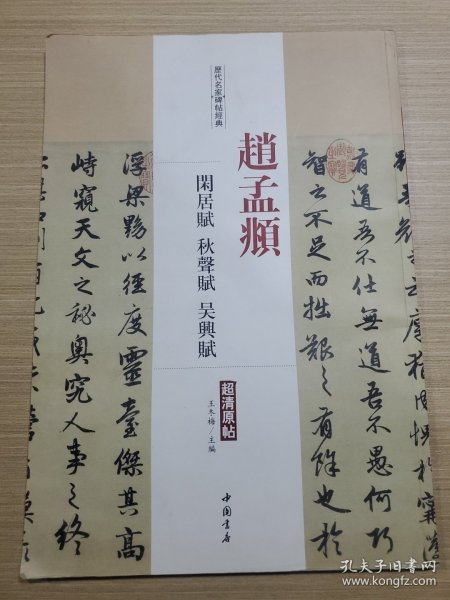 歷代名家碑帖經典
趙孟頫
閑居賦 秋聲賦 吴興賦
超清原帖
王冬梅/主編
中国書店
有道吾不仕無道吾不愚何巧
智之不足而拙艱之有餘也於
浮梁黝以徑度靈臺傑其高
峙窺天文之祕奥究人事之終
孔夫子旧书网
www.kongfz.com